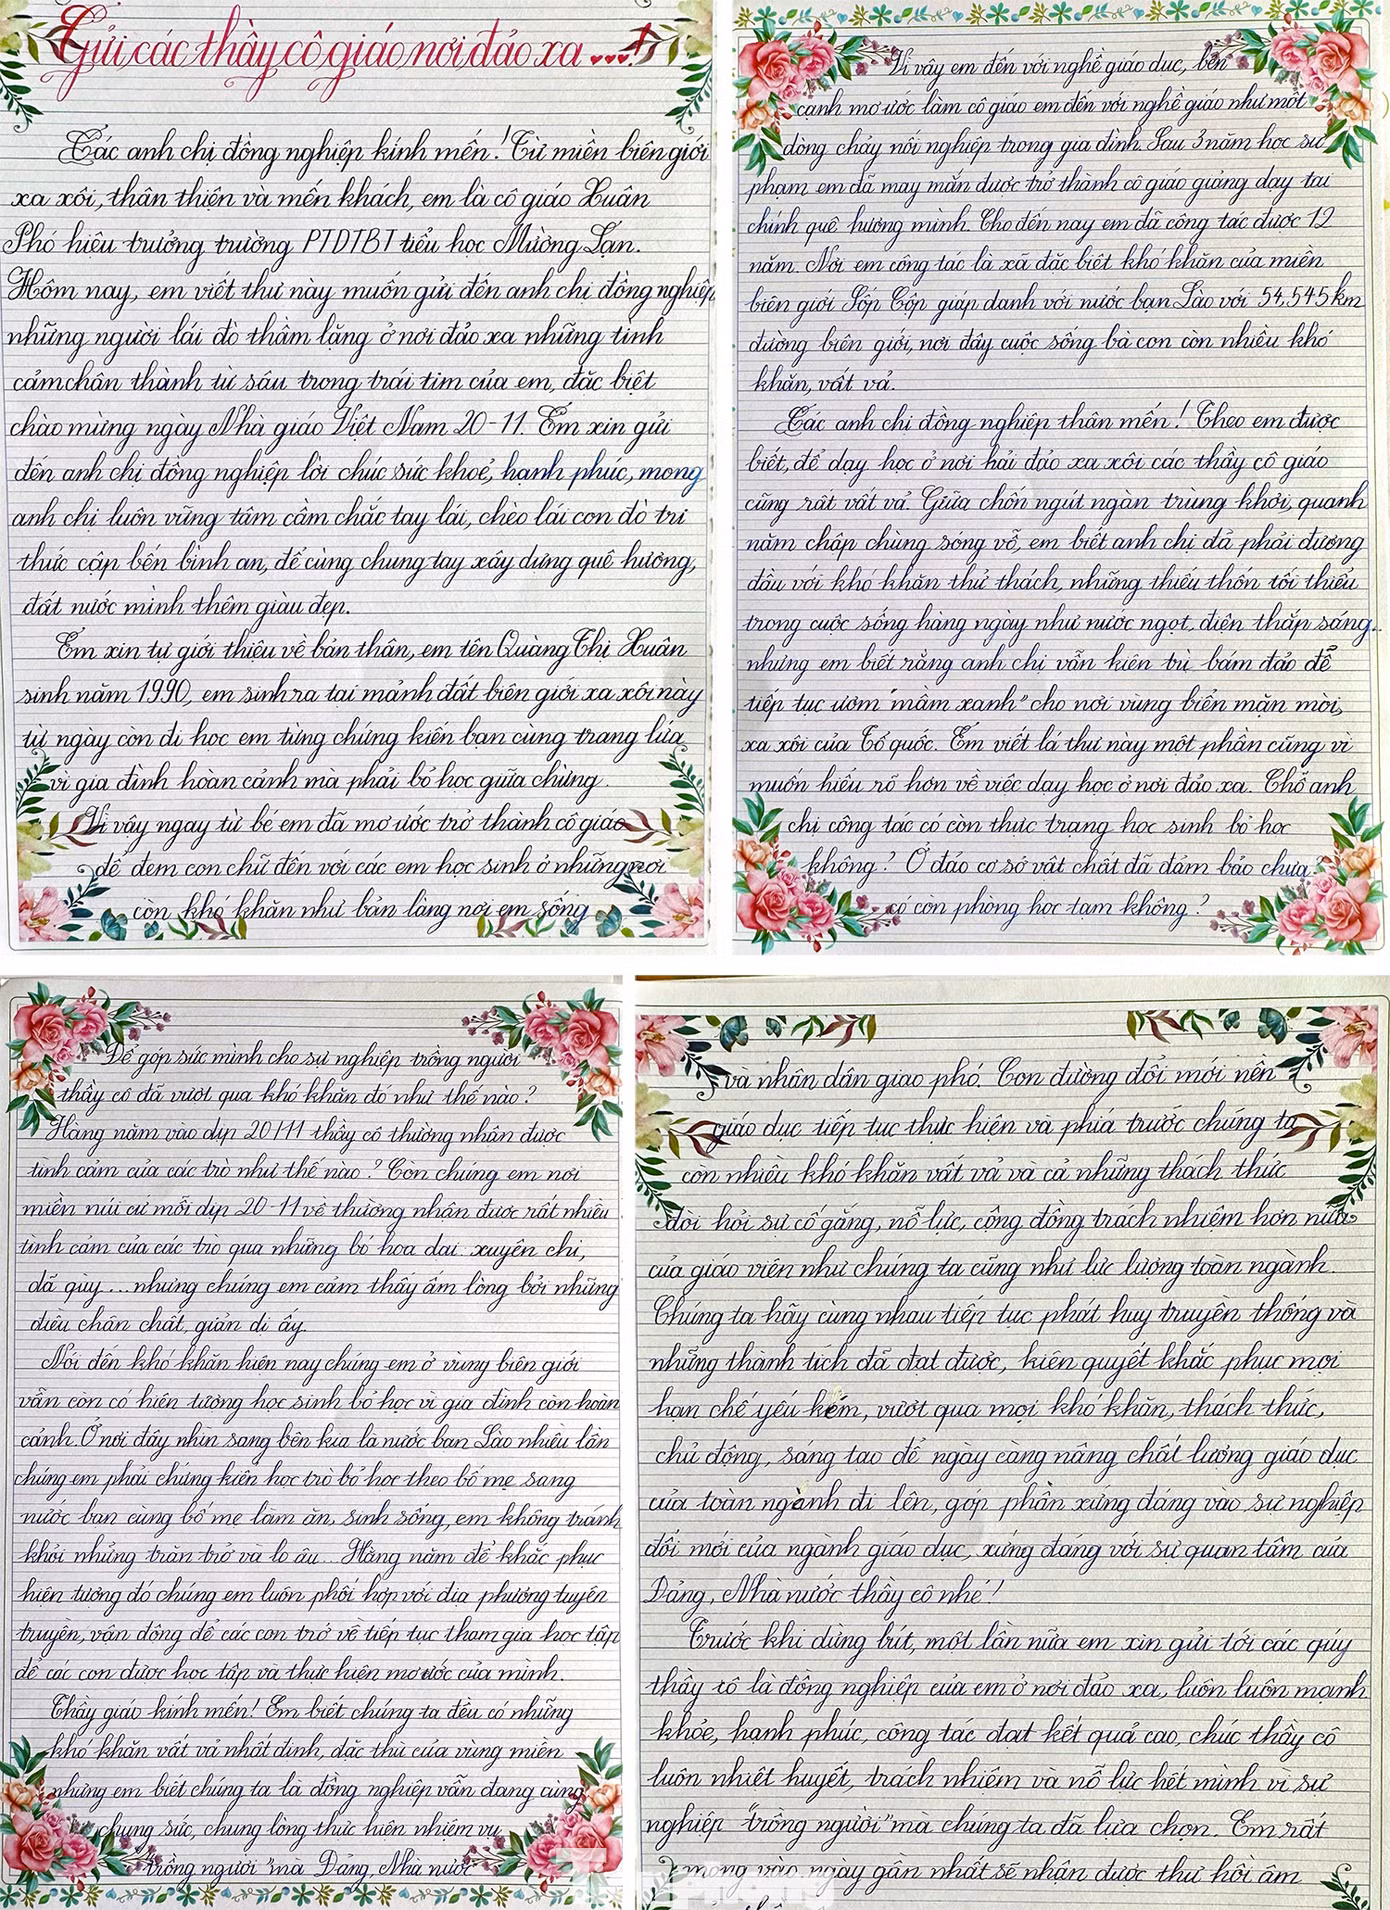 Gửi các thầy cô giáo nơi đảo xa
Các anh chị đồng nghiệp kính mến! Từ miền biên giới
xa xôi, thân thiện và mến khách, em là cô giáo Xuân
Phó hiệu trưởng trường PTDTBT tiểu học Mường Lạn.
Hôm nay, em viết thư này muốn gửi đến anh chị đồng nghiệp
những người lái đò thầm lặng ở nơi đảo xa những tình
cảm chân thành từ sâu trong trái tim của em, đặc biệt
chào mừng ngày Nhà giáo Việt Nam 20-11. Em xin gửi
đến anh chị đồng nghiệp lời chúc sức khoẻ, hạnh phúc, mong
anh chị luôn vững tâm cầm chắc tay lái, chèo lái con đò tri
thức cập bến bình an, để cùng chung tay xây dựng quê hương,
đất nước mình thêm giàu đẹp.
Em xin tự giới thiệu về bản thân, em tên Quàng Thị Xuân
sinh năm 1990, em sinh ra tại mảnh đất biên giới xa xôi này
từ ngày còn đi học em từng chứng kiến bạn cùng trang lứa
vì gia đình hoàn cảnh mà phải bỏ học giữa chừng.
Vì vậy ngay từ bé em đã mơ ước trở thành cô giáo
để đem con chữ đến với các em học sinh ở những nơi
còn khó khăn như bản làng nơi em sống
Vì vậy em đến với nghề giáo dục, bên
cạnh mơ ước làm cô giáo em đến với nghề giáo như một
dòng chảy nối nghiệp trong gia đình. Sau 3 năm học sư
phạm em đã may mắn được trở thành cô giáo giảng dạy tại
chính quê hương mình. Cho đến nay em đã công tác được 12
năm. Nơi em công tác là xã đặc biệt khó khăn của miền
biên giới Sốp Cộp giáp danh với nước bạn Lào với 54,545km
đường biên giới, nơi đây cuộc sống bà con còn nhiều khó
khăn, vất vả.
Các anh chị đồng nghiệp thân mến! Theo em được
biết, để dạy học ở nơi hải đảo xa xôi các thầy cô giáo
cũng rất vất vả. Giữa chốn ngút ngàn trùng khơi, quanh
năm chập chùng sóng vỗ, em biết anh chị đã phải đương
đầu với khó khăn thử thách, những thiếu thốn tối thiểu
trong cuộc sống hàng ngày như nước ngọt, điện thắp sáng...
nhưng em biết rằng anh chị vẫn kiên trì bám đảo để
tiếp tục ươm "mầm xanh" cho nơi vùng biển mặn mòi,
xa xôi của Tổ quốc. Em viết lá thư này một phần cũng vì
muốn hiểu rõ hơn về việc dạy học ở nơi đảo xa. Chỗ anh
chị công tác có còn thực trạng học sinh bỏ học
không? Ở đảo cơ sở vật chất đã đảm bảo chưa?
có còn phòng học tạm không?
Để góp sức mình cho sự nghiệp trồng người
thầy cô đã vượt qua khó khăn đó như thế nào?
Hàng năm vào dịp 20/11 thầy cô thường nhận được
tình cảm của các trò như thế nào? Còn chúng em nơi
miền núi cứ mỗi dịp 20-11 về thường nhận được rất nhiều
tình cảm của các trò qua những bó hoa dại xuyến chi,
dã quỳ...nhưng chúng em cảm thấy ấm lòng bởi những
điều chân chất, giản dị ấy.
Nói đến khó khăn hiện nay chúng em ở vùng biên giới
vẫn còn có hiện tượng học sinh bỏ học vì gia đình còn hoàn
cảnh. Ở nơi đây nhìn sang bên kia là nước bạn Lào nhiều lần
chúng em phải chứng kiến học trò bỏ học theo bố mẹ sang
nước bạn cùng bố mẹ làm ăn, sinh sống, em không tránh
khỏi những trăn trở và lo âu... Hằng năm để khắc phục
hiện tượng đó chúng em luôn phối hợp với địa phương tuyên
truyền, vận động để các con trở về tiếp tục tham gia học tập
để các con được học tập và thực hiện mơ ước của mình.
Thầy giáo kính mến! Em biết chúng ta đều có những
khó khăn vất vả nhất định, đặc thù của vùng miền
nhưng em biết chúng ta là đồng nghiệp vẫn đang cùng
chung sức, chung lòng thực hiện nhiệm vụ
trồng người" mà Đảng, Nhà nước
và nhân dân giao phó. Con đường đổi mới nền
giáo dục tiếp tục thực hiện và phía trước chúng ta
còn nhiều khó khăn vất vả và cả những thách thức
đòi hỏi sự cố gắng, nỗ lực, công đồng trách nhiệm hơn nữa
của giáo viên như chúng ta cũng như lực lượng toàn ngành.
Chúng ta hãy cùng nhau tiếp tục phát huy truyền thống và
những thành tích đã đạt được, kiên quyết khắc phục mọi
hạn chế yếu kém, vượt qua mọi khó khăn, thách thức,
chủ động, sáng tạo để ngày càng nâng chất lượng giáo dục
của toàn ngành đi lên, góp phần xứng đáng vào sự nghiệp
đổi mới của ngành giáo dục, xứng đáng với sự quan tâm của
Đảng, Nhà nước thầy cô nhé!
Trước khi dừng bút, một lần nữa em xin gửi tới các quý
thầy cô là đồng nghiệp của em ở nơi đảo xa, luôn luôn mạnh
khỏe, hạnh phúc, công tác đạt kết quả cao, chúc thầy cô
luôn nhiệt huyết, trách nhiệm và nỗ lực hết mình vì sự
nghiệp "trồng người" mà chúng ta đã lựa chọn. Em rất
mong vào ngày gần nhất sẽ nhận được thư hồi âm